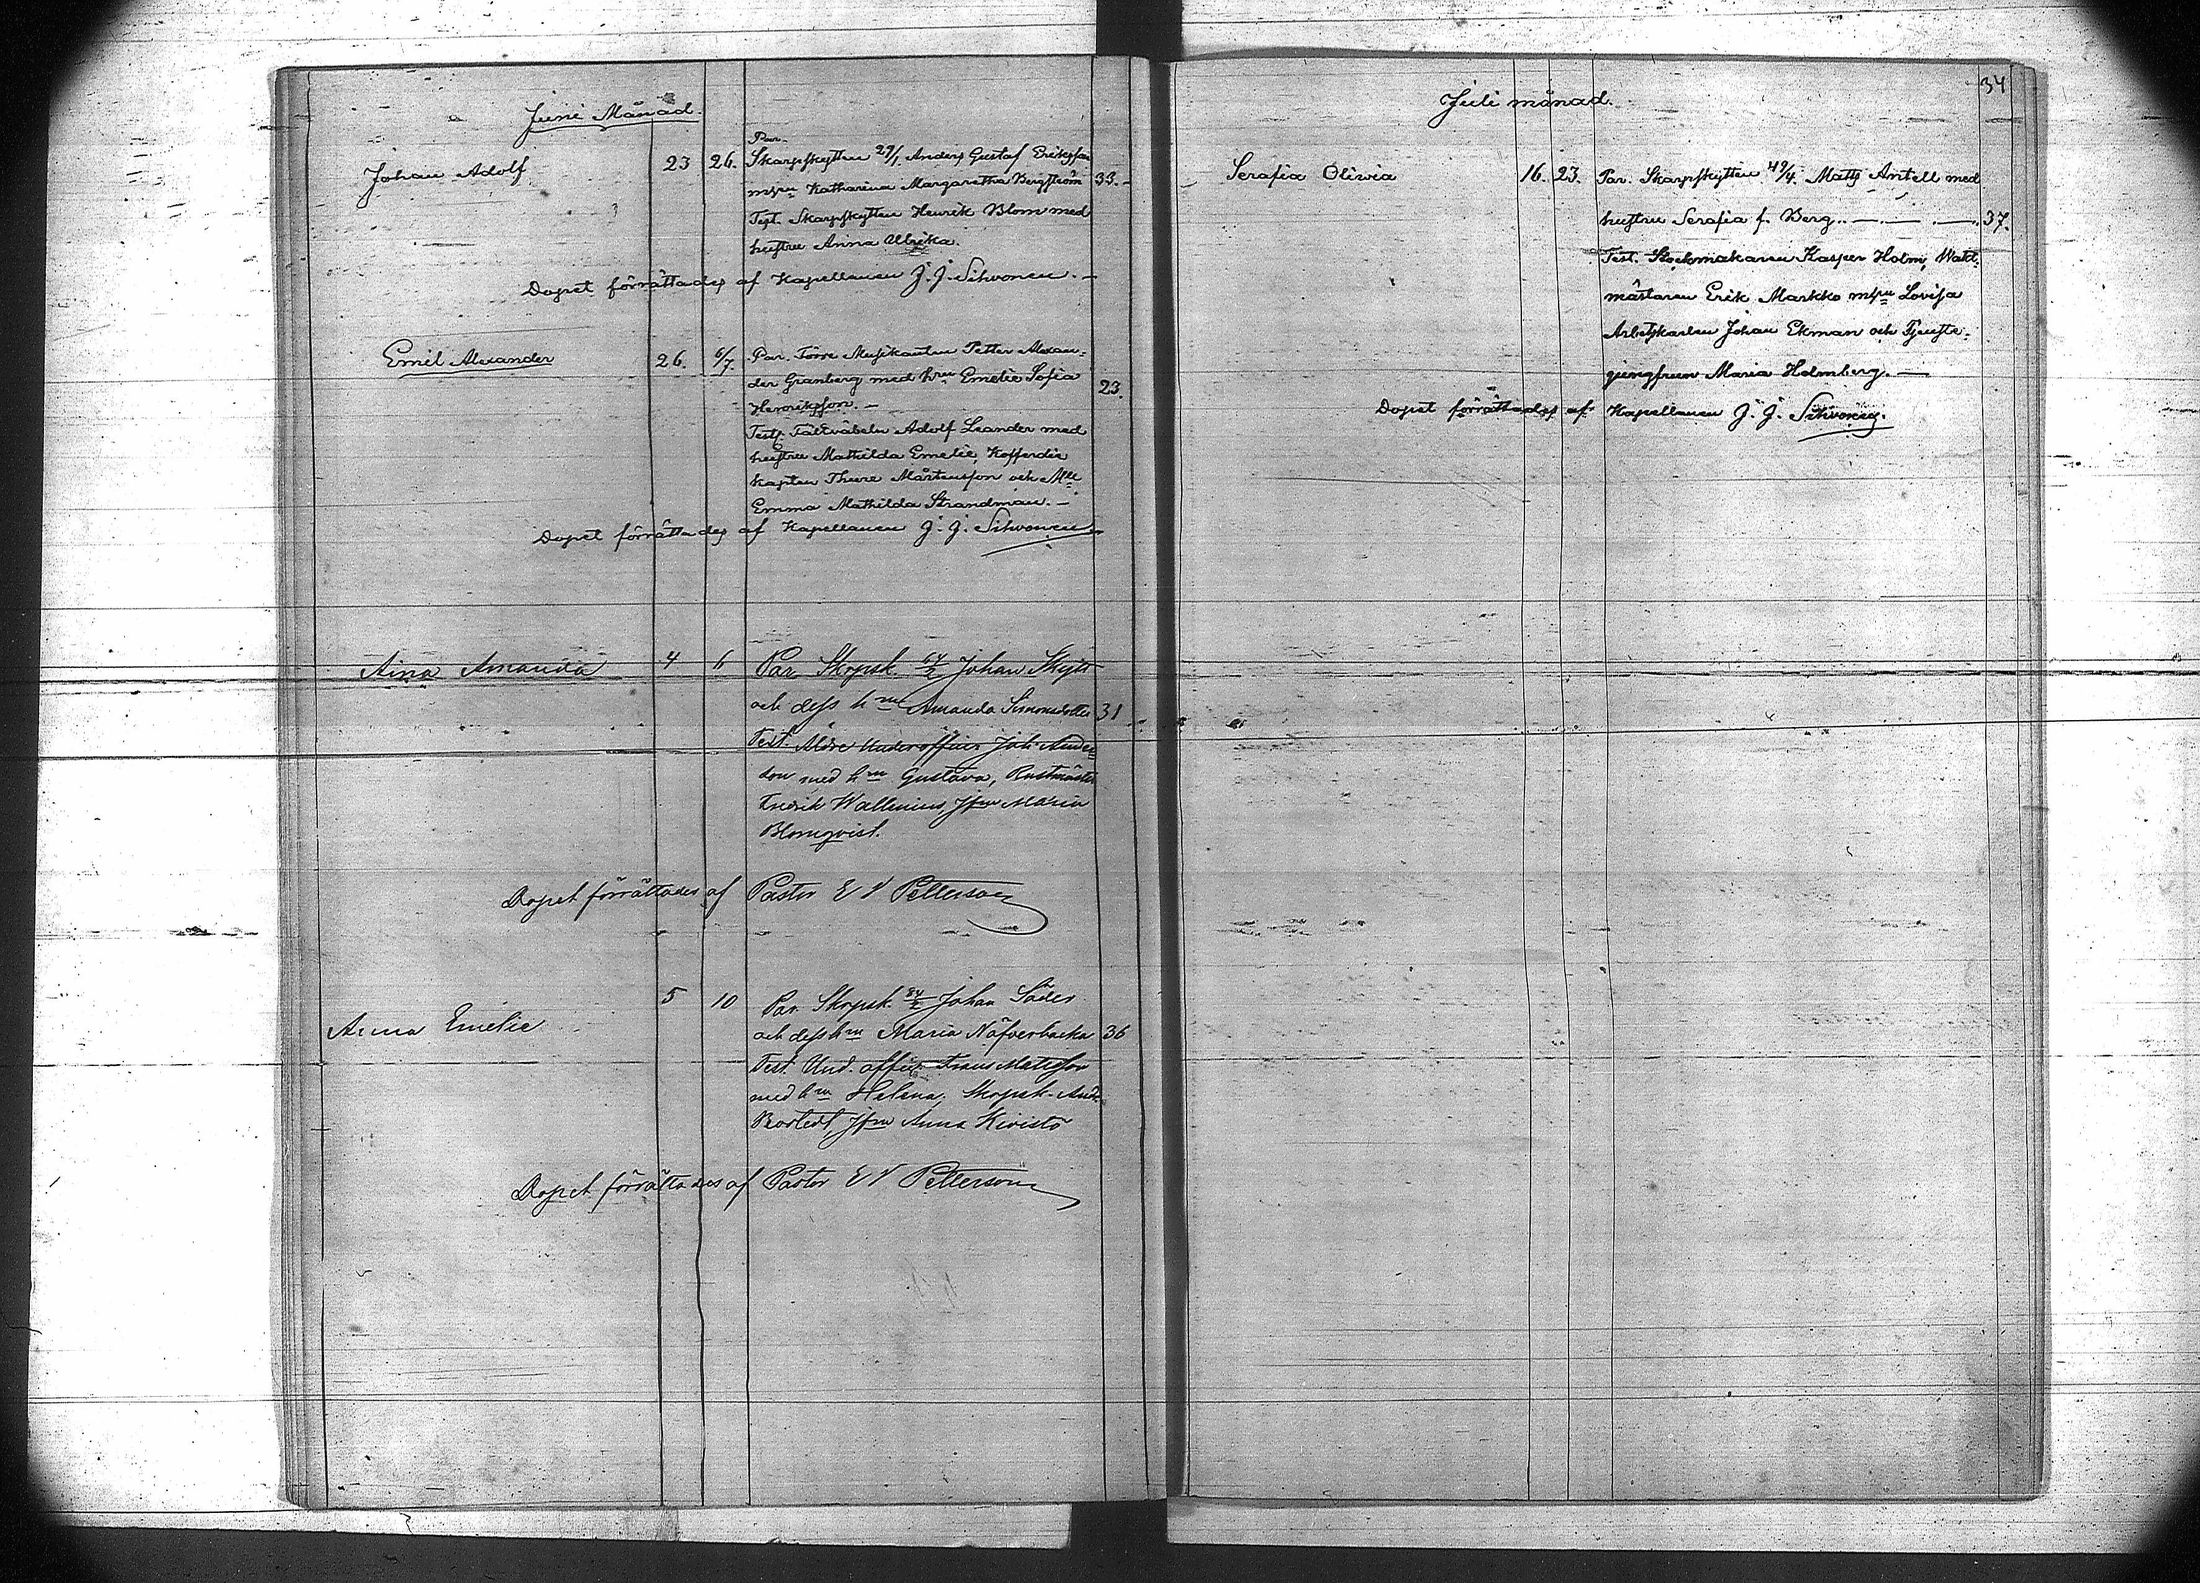 Juni Månad.
Par.
Johan Adolf 23 26. Skarpskytten 29/1 Anders Gustaf Eriksson
m hru Katharina Margaretha Bergström 33.
Test. Skarpskytten Henrik Blom med
hustru Anna Ulrika.
Dopet förrättades af Kapellanen J. J. Sihvonen.
Emil Alexander 26. 6/7. Par. Förre Musikanten Petter Alexan-
der Granberg med hru Emelie Sofia 23.
Henriksson.
Test. Fältväbeln Adolf Leander med
hustru Mathilda Emelie, Kofferdie
kapten Thure Mårtensson och Mlle
Emma Mathilda Strandman.
Dopet förrättades af Kapellanen J. J. Sihvonen
Aina Amanda 4 6 Par Skrpsk. 64/2 Johan Skytt
och dess hru Amanda Simonsdotter 31
Test. Äldre Underofficer Joh. Ander-
son med hru Gustava, Rustmäster
Fredrik Wallenius, Jfru Maria
Blomqvist.
Dopet förrättades af Pastor E V Petterson
5 10 Par. Skrpsk. 84/2 Johan Söder
Anna Emelie och dess hru Maria Näfverbacka 36
Test. Und. officer Frans Matsson
med hru Helena, Skrpsk. And.
Jfru Anna Kivistö
Dopet förrättades af Pastor E V Petterson
34
Juli månad.
Serafia Olivia 16. 23. Par. Skarpskytten 49/4. Matts Antell med
hustru Serafia f. Berg. 37.
Test. Stockmakaren Kasper Holm, Wakt-
mästaren Erik Markko m hru Lovisa
Arbetskarlen Johan Ekman och Tjenste-
jungfrun Maria Holmberg.
Dopet förrättades af Kapellanen J. J. Sihvonen.